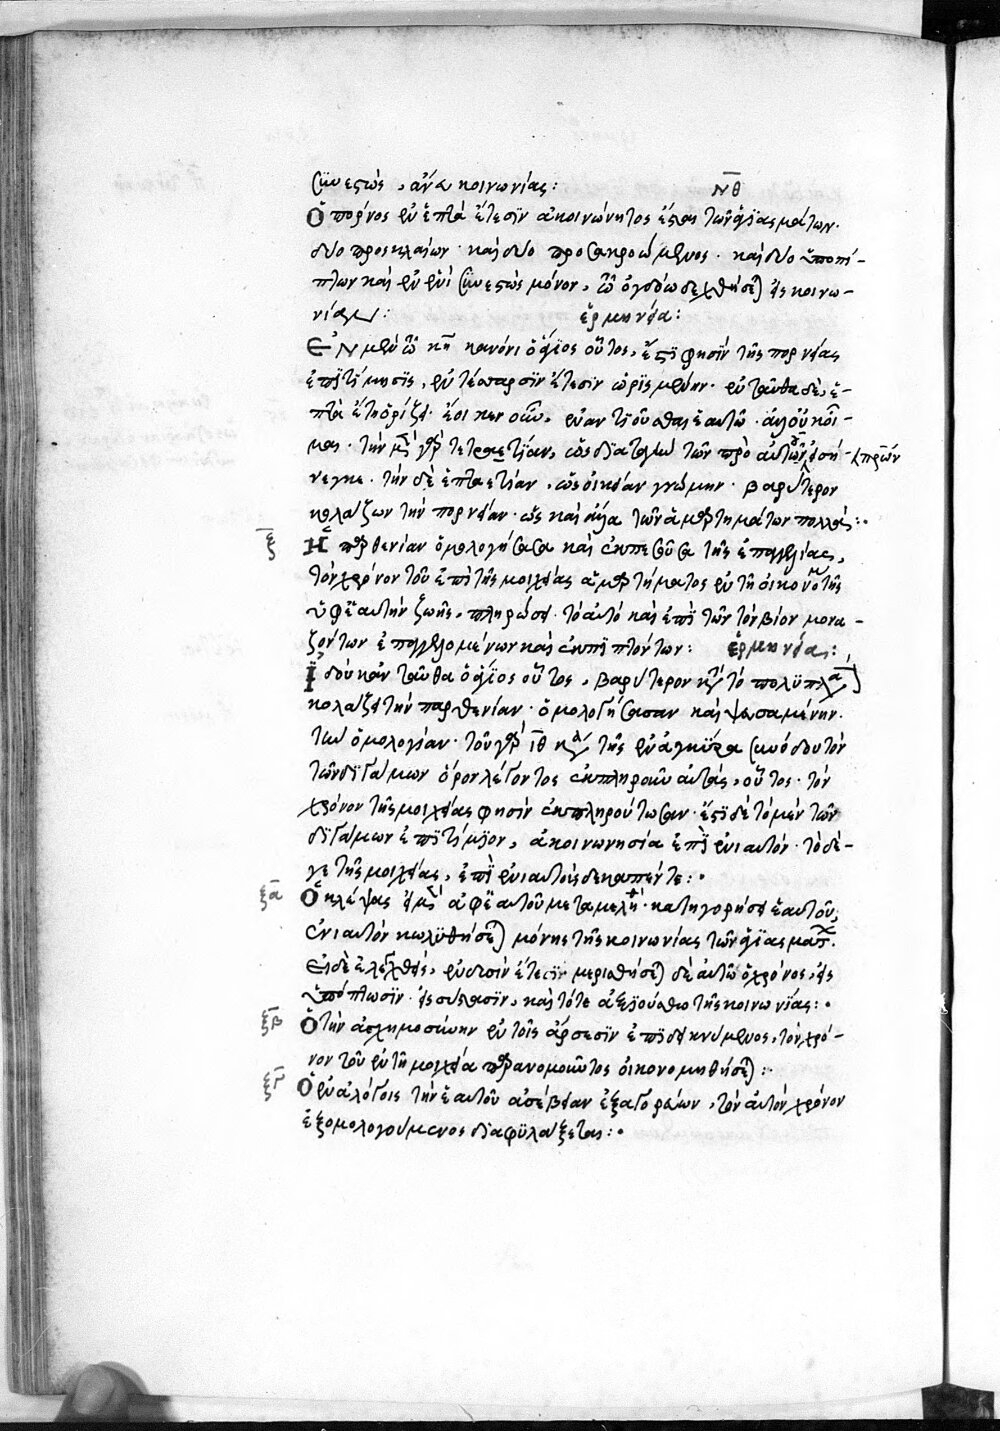 συνεστὼς, ἄνευ κοινωνίας: νθ
Ὁ πόρνος ἐν ἑπτὰ ἔτεσϊν ἀκοινώνητος ἔσται τῶν ἁγϊασμάτων·
δύο προσκλαίων· καὶ δύο προσακροώμενος· καὶ δύο ὑποπί-
πτων καὶ ἐν ἑνὶ συνεστὼς μόνον, τῶ ὀγδόω δεχθήσεται εἰς κοινω-
νίαν: ἑρμηνεία:
Ἐν μὲν τῶ κβ κανόνι ὁ ἅγιος οὗτος, ἔστϊ φησὶν τῆς πορνείας
ἐπϊτίμησϊς, ἐν τέσσαρσϊν ἔτεσϊν ὡρϊσμένην· ἐνταῦθα δὲ, ἑ-
πτὰ ἔτη ὁρίζει· ἔοικεν οὖν, ἐναντϊοῦσθαι ἑαυτῶ· ἀλλ' οὐκ οἶ-
μαι· τὴν μὲν γὰρ τετραετίαν, ὡς διαταγὴν τῶν πρὸ αὐτοῦ πρων εἰσή-
νεγκε· τὴν δὲ ἑπταετίαν, ὡς οἰκείαν γνώμην· βαρύτερον
κολάζων τὴν πορνείαν· ὡς καὶ ἄλλα τῶν ἁμαρτημάτων πολλά:·
ξ Ἡ παρθενίαν ὁμολογήσασα καὶ ἐκπεσοῦσα τῆς ἐπαγγελίας,
τὸν χρόνον τοῦ ἐπὶ τῆς μοιχείας ἁμαρτήματος ἐν τῆ οἰκονομία τῆς
ὑφ' ἑαυτὴν ζωῆς, πληρώσει· τὸ αὐτὸ καὶ ἐπὶ τῶν τὸν βίον μονα-
ζόντων ἐπαγγελομένων καὶ ἐκπϊπτόντων: ἑρμηνεία:
Ἰδοὺ κἀνταῦθα ὁ ἅγϊος οὗτος, βαρύτερον κατὰ τὸ πολὺ πλα
κολάζει τὴν παρθενίαν· ὁμολογήσασαν καὶ ψευσαμένην.
τὴν ὁμολογίαν· τοῦ γὰρ ιθ κα τῆς ἐν ἀγκύρα συνόδου τὸν
τῶν δϊγάμων ὅρον λέγοντος ἐκπληροῦν αὐτὰς, οὗτος· τὸν
χρόνον τῆς μοιχείας φησὶν ἐκπληρούτωσαν· ἔστϊ δὲ τὸ μὲν τῶν
δϊγάμων ἐπϊτίμϊον, ἀκοινωνησία ἐπὶ ἐνιαυτόν· τὸ δέ-
γε τῆς μοιχείας, ἐπὶ ἐνιαυτοῖς δεκαπέντε:·
ξα Ὁ κλέψας εἰ μὲν ἀφ' ἑαυτοῦ μεταμεληθεὶς κατηγορήσει ἑαυτοῦ,
ἐνιαυτὸν κωλϋθήσεται μόνης τῆς κοινωνίας τῶν ἁγϊασμάτ.
Εἰ δὲ ἐλεγχθείη, ἐν δυσὶν ἔτεσϊν μερισθήσεται δὲ αὐτῶ ὁ χρόνος, εἰς
ὑπόπτωσϊν· εἰς σύστασϊν, καὶ τότε ἀξϊούσθω τῆς κοινωνίας:·
ξβ Ὁ τὴν ἀσχημοσύνην ἐν τοῖς ἄρσεσϊν ἐπϊδεικνύμενος, τὸν χρό-
νον τοῦ ἐν τῆ μοιχεία παρανομοῦντος οἰκονομηθήσεται:·
ξγ Ὁ ἐν ἀλόγοις τὴν ἑαυτοῦ ἀσέβειαν ἐξαγορεύων, τὸν αὐτὸν χρόνον
ἐξομολογούμενος διαφϋλάξεται:·